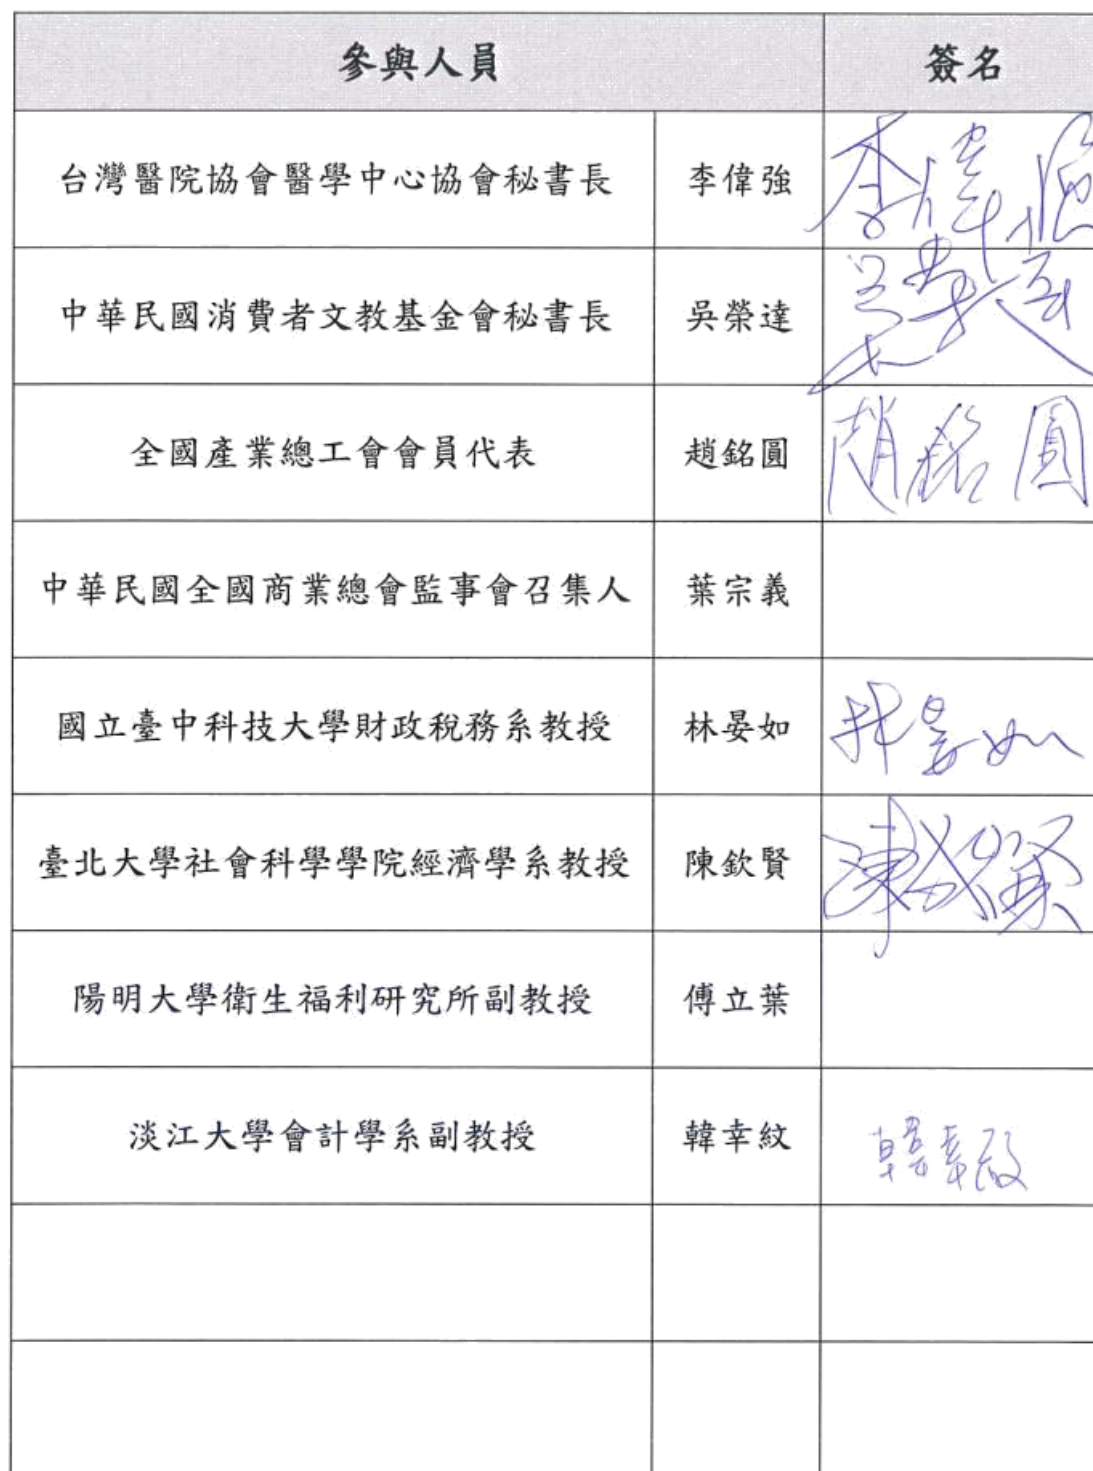 參與人員 簽名
台灣醫院協會醫學中心協會秘書長 李偉強 李偉強
中華民國消費者文教基金會秘書長 吳榮達 吳榮達
全國產業總工會會員代表 趙銘圓 趙銘圓
中華民國全國商業總會監事會召集人 葉宗義
國立臺中科技大學財政稅務系教授 林晏如 林晏如
臺北大學社會科學學院經濟學系教授 陳欽賢 陳欽賢
陽明大學衛生福利研究所副教授 傅立葉
淡江大學會計學系副教授 韓幸紋 韓幸紋